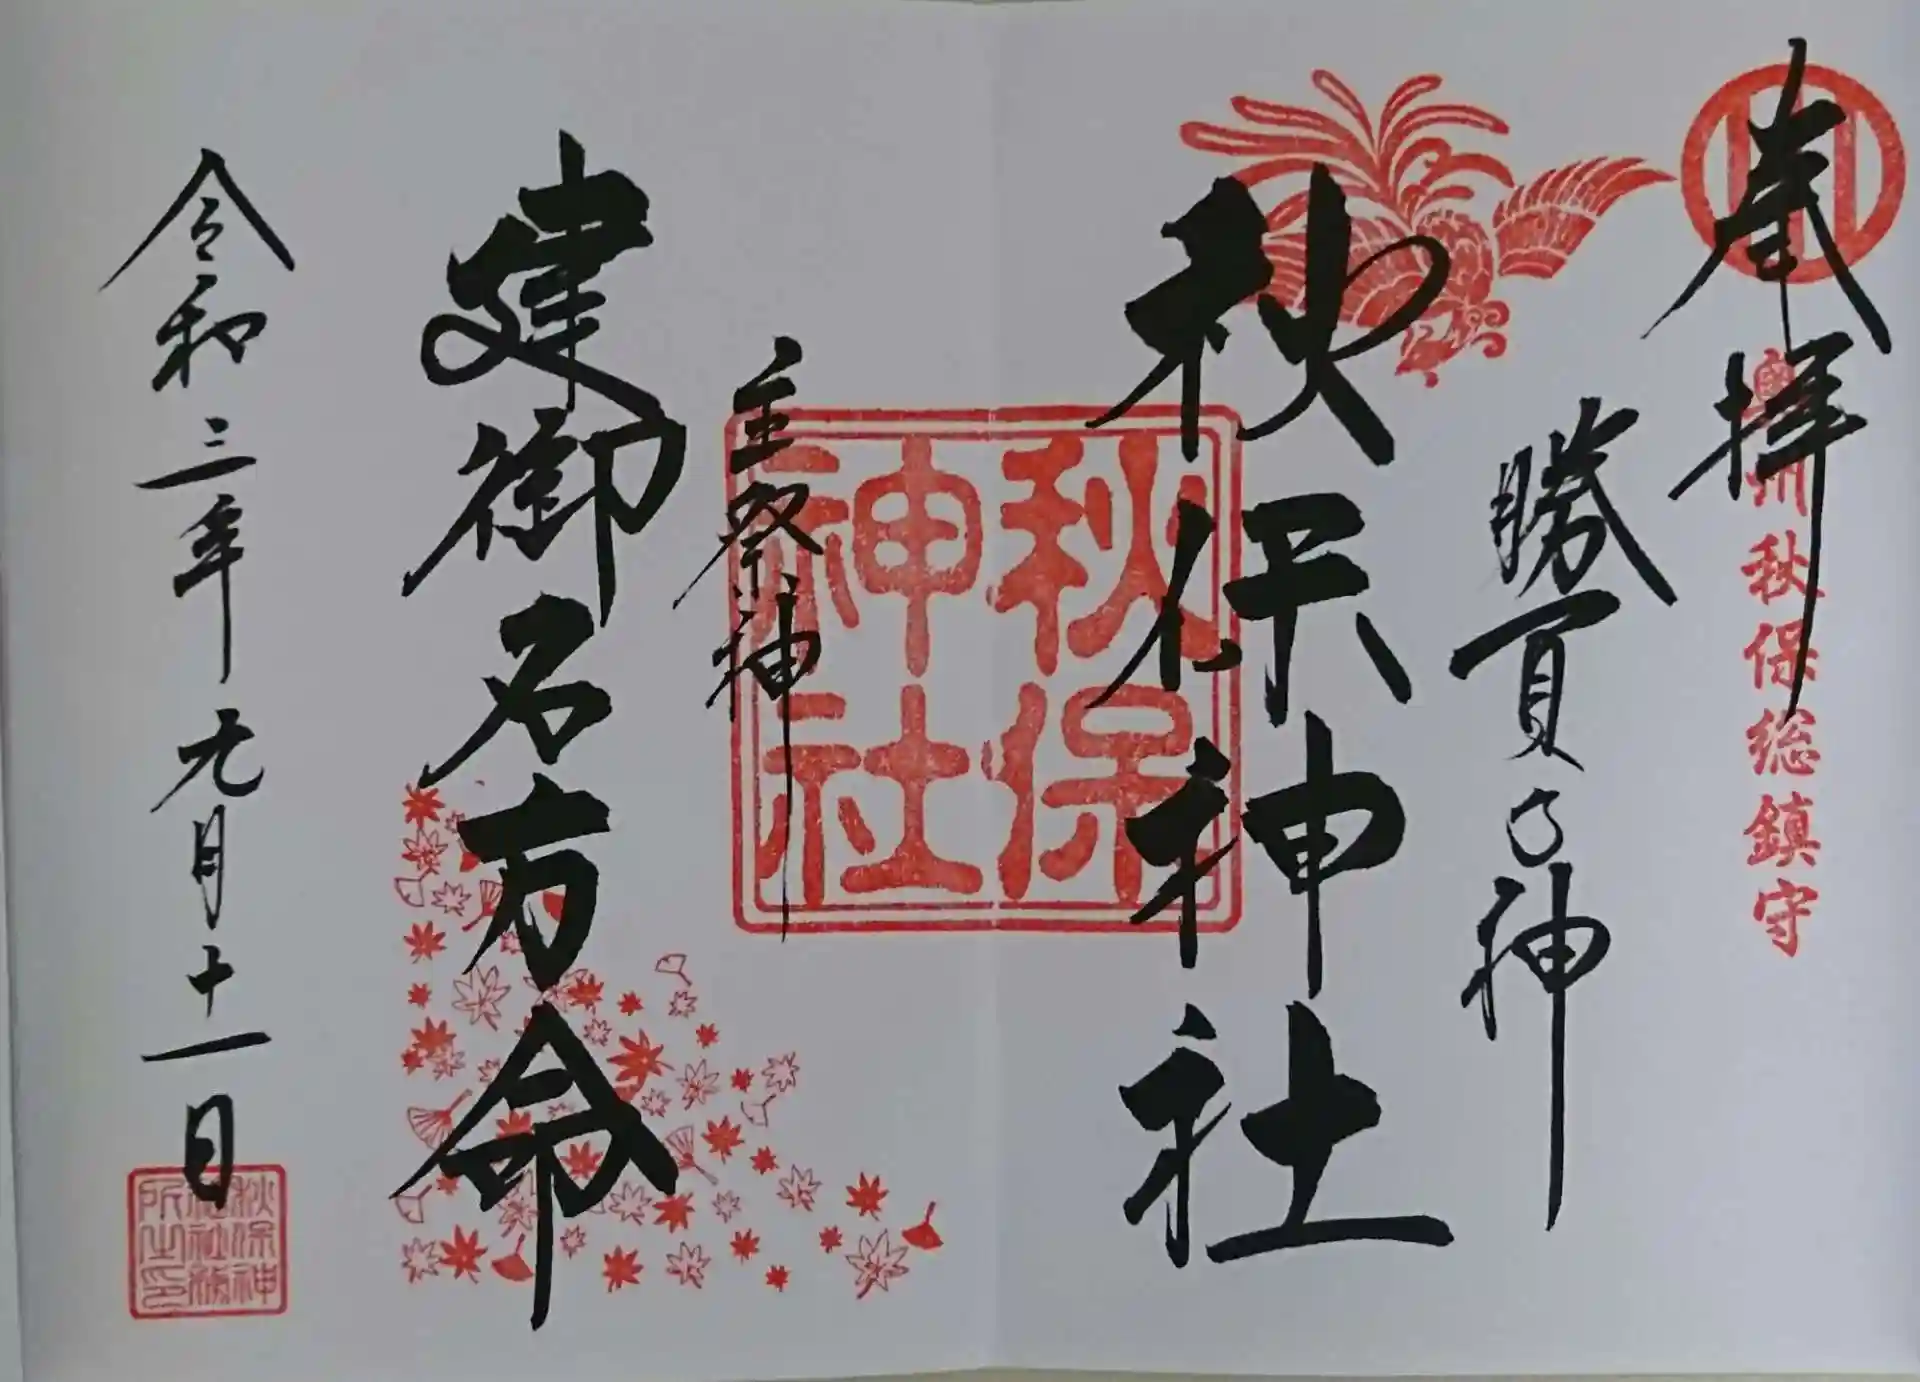 奉拝
奥州秋保総鎮守
勝負の神
秋保神社
秋保神社
主祭神
建御名方命
令和三年九月十一日
秋保神社社務所之印